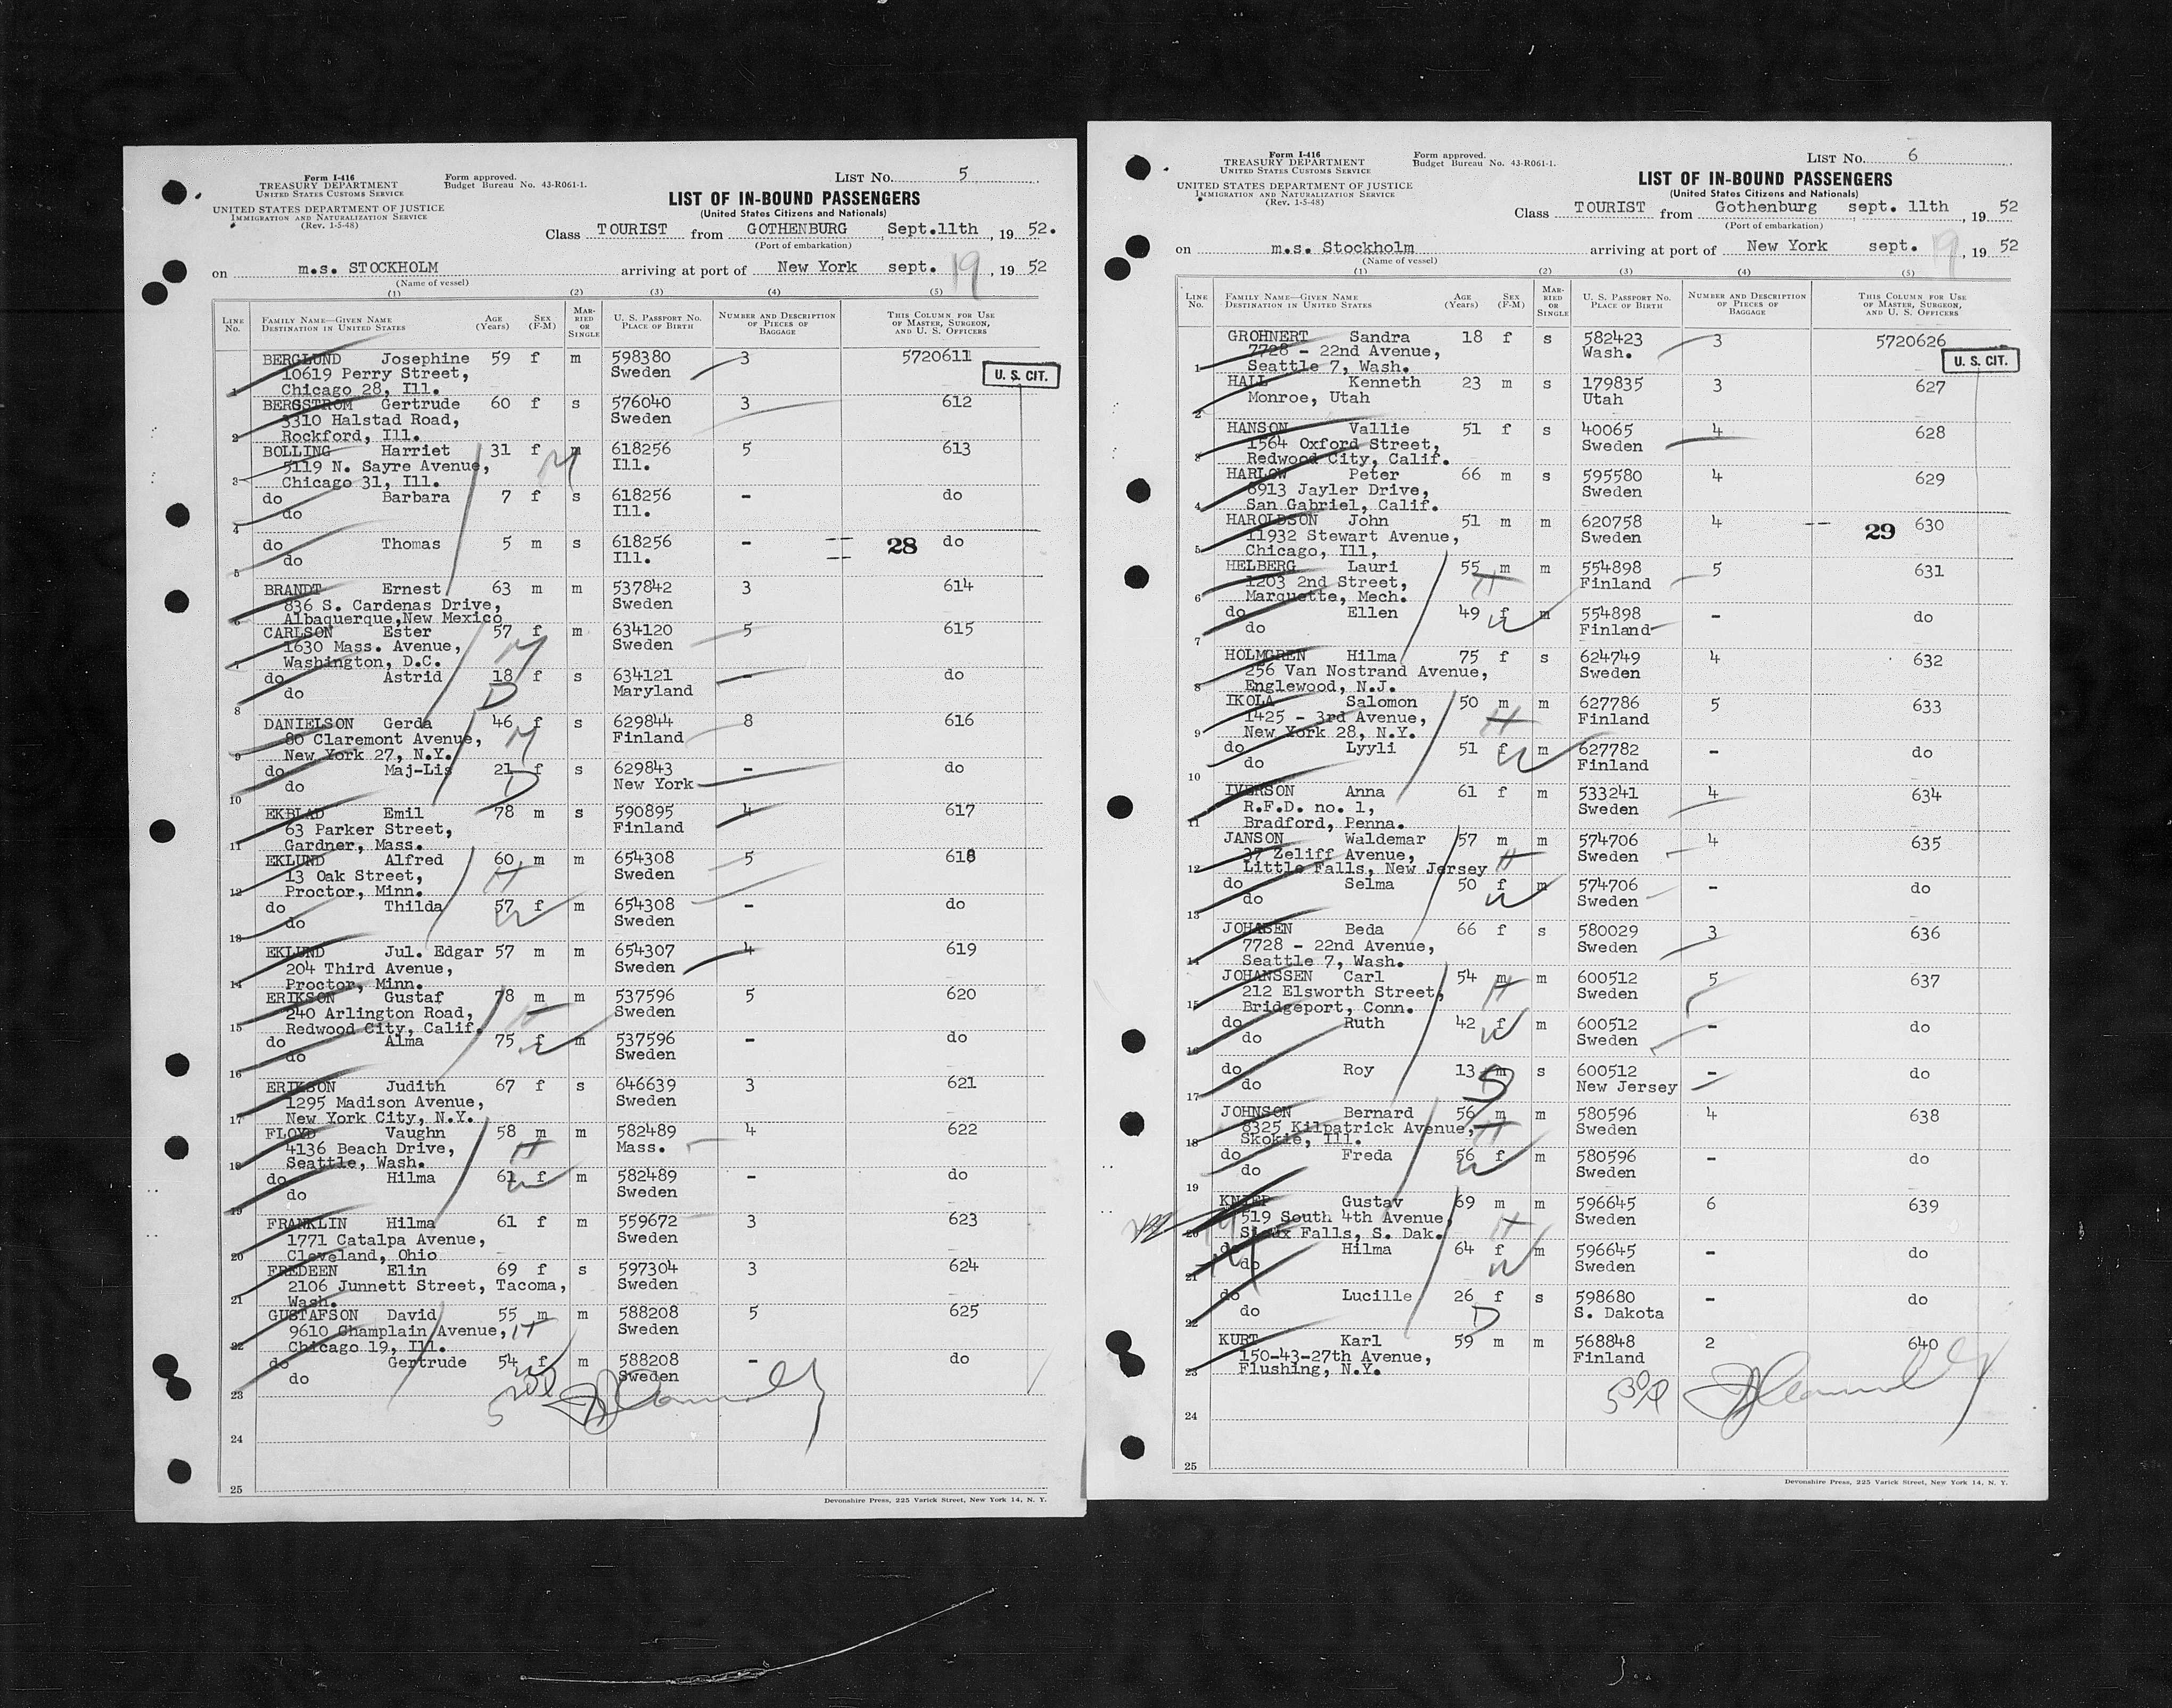 Form I-416
TREASURY DEPARTMENT
UNITED STATES CUSTOMS SERVICE
Form approved.
Budget Bureau No. 43-R061-1.
LIST No. 5
UNITED STATES DEPARTMENT OF JUSTICE
IMMIGRATION AND NATURALIZATION SERVICE
(Rev. 1-5-48)
LIST OF IN-BOUND PASSENGERS
(United States Citizens and Nationals)
Class TOURIST from GOTHENBURG Sept.11th, 19 52.
(Port of embarkation)
on m.s. STOCKHOLM arriving at port of New York sept. 19, 19 52
(Name of vessel)
(1) (2) (3) (4) (5)
LINE No. FAMILY NAME—GIVEN NAME DESTINATION IN UNITED STATES AGE (Years) SEX (F-M) MARRIED OR SINGLE U. S. PASSPORT No. PLACE OF BIRTH NUMBER AND DESCRIPTION OF PIECES OF BAGGAGE THIS COLUMN FOR USE OF MASTER, SURGEON, AND U. S. OFFICERS
BERGLUND Josephine 59 f m 598380 3 5720611
10619 Perry Street, Sweden U. S. CIT.
1 Chicago 28, Ill.
BERGSTROM Gertrude 60 f s 576040 3 612
3310 Halstad Road, Sweden
2 Rockford, Ill.
BOLLING Harriet 31 f m 618256 5 613
5119 N. Sayre Avenue, Ill. M
3 Chicago 31, Ill.
do Barbara 7 f s 618256 - do
do Ill.
4
do Thomas 5 m s 618256 - 28 do
do Ill.
5
BRANDT Ernest 63 m m 537842 3 614
836 S. Cardenas Drive, Sweden
6 Albaquerque,New Mexico
CARLSON Ester 57 f m 634120 5 615
1630 Mass. Avenue, M Sweden
7 Washington, D.C.
do Astrid 18 f s 634121 - do
do D Maryland
8
DANIELSON Gerda 46 f s 629844 8 616
80 Claremont Avenue, M Finland
9 New York 27, N.Y.
do Maj-Lis 21 f s 629843 - do
do D New York
10
EKBLAD Emil 78 m s 590895 4 617
63 Parker Street, Finland
11 Gardner, Mass.
EKLUND Alfred 60 m m 654308 5 618
13 Oak Street, H Sweden
12 Proctor, Minn.
do Thilda 57 f m 654308 - do
do W Sweden
13
EKLUND Jul. Edgar 57 m m 654307 4 619
204 Third Avenue, Sweden
14 Proctor, Minn.
ERIKSON Gustaf 78 m m 537596 5 620
240 Arlington Road, H Sweden
15 Redwood City, Calif.
do Alma 75 f m 537596 - do
do W Sweden
16
ERIKSON Judith 67 f s 646639 3 621
1295 Madison Avenue, Sweden
17 New York City, N.Y.
FLOYD Vaughn 58 m m 582489 4 622
4136 Beach Drive, H Mass.
18 Seattle, Wash.
do Hilma 61 f m 582489 - do
do W Sweden
19
FRANKLIN Hilma 61 f m 559672 3 623
1771 Catalpa Avenue, Sweden
20 Cleveland, Ohio
FREDEEN Elin 69 f s 597304 3 624
2106 Junnett Street, Tacoma, Sweden
21 Wash.
GUSTAFSON David 55 m m 588208 5 625
9610 Champlain Avenue, H Sweden
22 Chicago 19, Ill.
do Gertrude 54 f m 588208 - do
do W Sweden
23
24
25
Devonshire Press, 225 Varick Street, New York 14, N. Y.
Form I-416
TREASURY DEPARTMENT
UNITED STATES CUSTOMS SERVICE
Form approved.
Budget Bureau No. 43-R061-1.
LIST No. 6
UNITED STATES DEPARTMENT OF JUSTICE
IMMIGRATION AND NATURALIZATION SERVICE
(Rev. 1-5-48)
LIST OF IN-BOUND PASSENGERS
(United States Citizens and Nationals)
Class TOURIST from Gothenburg sept. 11th, 19 52
(Port of embarkation)
on m.s. Stockholm arriving at port of New York sept. 19, 19 52
(Name of vessel)
(1) (2) (3) (4) (5)
LINE No. FAMILY NAME—GIVEN NAME DESTINATION IN UNITED STATES AGE (Years) SEX (F-M) MARRIED OR SINGLE U. S. PASSPORT No. PLACE OF BIRTH NUMBER AND DESCRIPTION OF PIECES OF BAGGAGE THIS COLUMN FOR USE OF MASTER, SURGEON, AND U. S. OFFICERS
GROHNERT Sandra 18 f s 582423 3 5720626
7728 - 22nd Avenue, Wash. U. S. CIT.
1 Seattle 7, Wash.
HALL Kenneth 23 m s 179835 3 627
Monroe, Utah Utah
2
HANSON Vallie 51 f s 40065 4 628
1564 Oxford Street, Sweden
3 Redwood City, Calif.
HARLOW Peter 66 m s 595580 4 629
6913 Jayler Drive, Sweden
4 San Gabriel, Calif.
HAROLDSON John 51 m m 620758 4 29 630
11932 Stewart Avenue, Sweden
5 Chicago, Ill,
HELBERG Lauri 55 m m 554898 5 631
1203 2nd Street, H Finland
6 Marquette, Mech.
do Ellen 49 f m 554898 - do
do W Finland
7
HOLMGREN Hilma 75 f s 624749 4 632
256 Van Nostrand Avenue, Sweden
8 Englewood, N.J.
IKOLA Salomon 50 m m 627786 5 633
1425 - 3rd Avenue, H Finland
9 New York 28, N.Y.
do Lyyli 51 f m 627782 - do
do W Finland
10
IVERSON Anna 61 f m 533241 4 634
R.F.D. no. 1, Sweden
11 Bradford, Penna.
JANSON Waldemar 57 m m 574706 4 635
37 Zeliff Avenue, H Sweden
12 Little Falls, New Jersey
do Selma 50 f m 574706 - do
do W Sweden
13
JOHASEN Beda 66 f s 580029 3 636
7728 - 22nd Avenue, Sweden
14 Seattle 7, Wash.
JOHANSSEN Carl 54 m m 600512 5 637
212 Elsworth Street, H Sweden
15 Bridgeport, Conn.
do Ruth 42 f m 600512 - do
do W Sweden
16
do Roy 13 m s 600512 - do
do S New Jersey
17
JOHNSON Bernard 56 m m 580596 4 638
8325 Kilpatrick Avenue, H Sweden
18 Skokie, Ill.
do Freda 56 f m 580596 - do
do W Sweden
19
KNIEP Gustav 69 m m 596645 6 639
519 South 4th Avenue, H Sweden
20 Sioux Falls, S. Dak.
do Hilma 64 f m 596645 - do
do W Sweden
21
do Lucille 26 f s 598680 - do
do D S. Dakota
22
KURT Karl 59 m m 568848 2 640
150-43-27th Avenue, Finland
23 Flushing, N.Y.
24
25
Devonshire Press, 225 Varick Street, New York 14, N. Y.